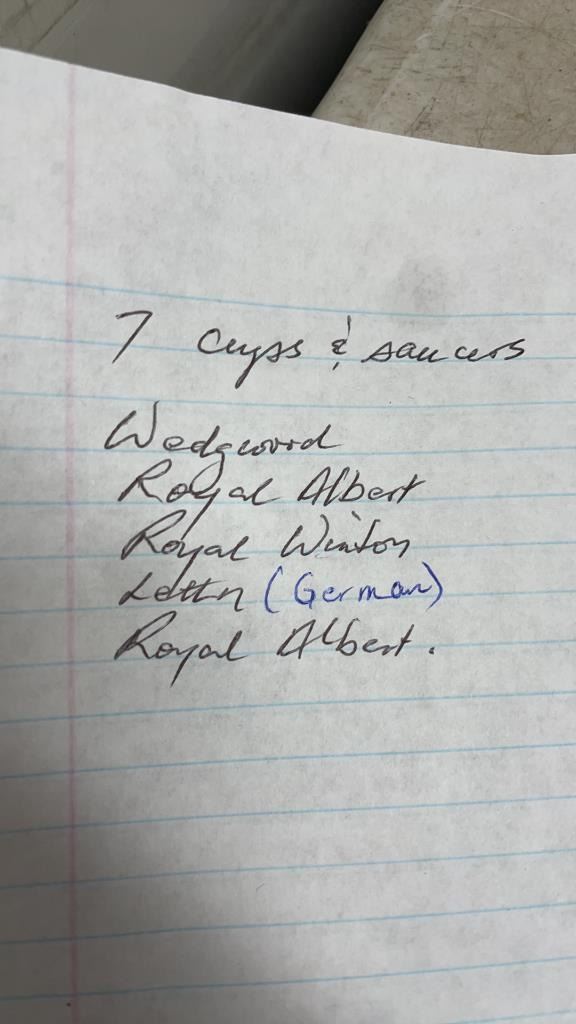 7 cups & saucers
Wedgwood
Royal Albert
Royal Winton
Lettin (German)
Royal Albert.